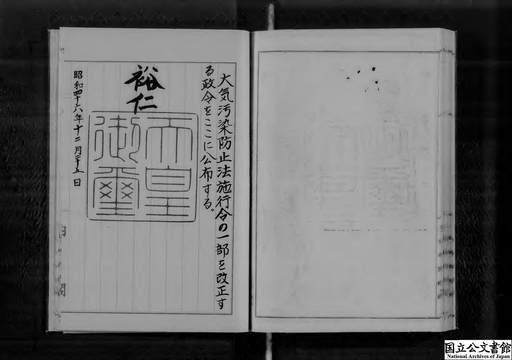 大気汚染防止法施行令の一部を改正す
る政令をここに公布する。
裕仁
天皇
御璽
昭和四十六年十二月二十五日
内閣
国立公文書館
National Archives of Japan